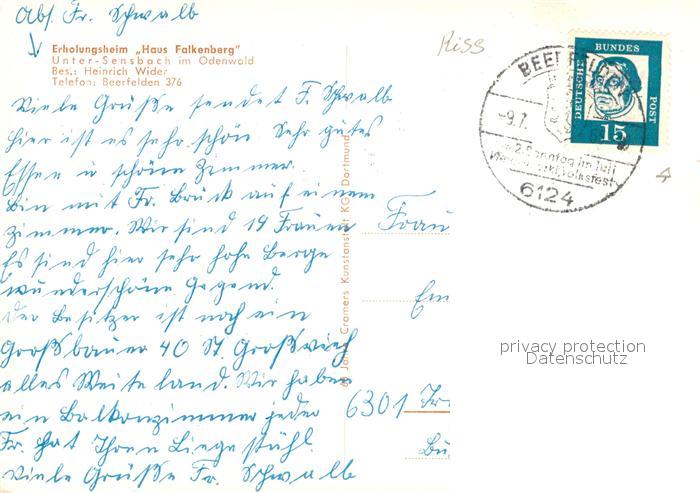 Abs. Fr. Schwalb
Erholungsheim „Haus Falkenberg"
Unter-Sensbach im Odenwald
Bes.: Heinrich Wider
Telefon: Beerfelden 376
Viele Grüße sendet F. Schwalb
hier ist es sehr schön Sehr gutes
Essen u schöne Zimmer.
Bin mit Fr. Bruck auf einem
Zimmer. Wir sind 19 Frauen
Es sind hier sehr hohe Berge
wunderschöne Gegend.
Der Besitzer ist noch ein
Großbauer 40 St. Großvieh
alles Weite land. Wir haben
ein Balkonzimmer jeder
Fr. hat Ihren Liege stühl.
Viele Grüße Fr. Schwalb
Cramers Kunstanstalt KG, Dortmund
Riss
DEUTSCHE BUNDES POST
15
BEERFELDEN
-9.7.
2. Sonntag im Juli
6124
4
Frau
Em
6301
privacy protection
Datenschutz